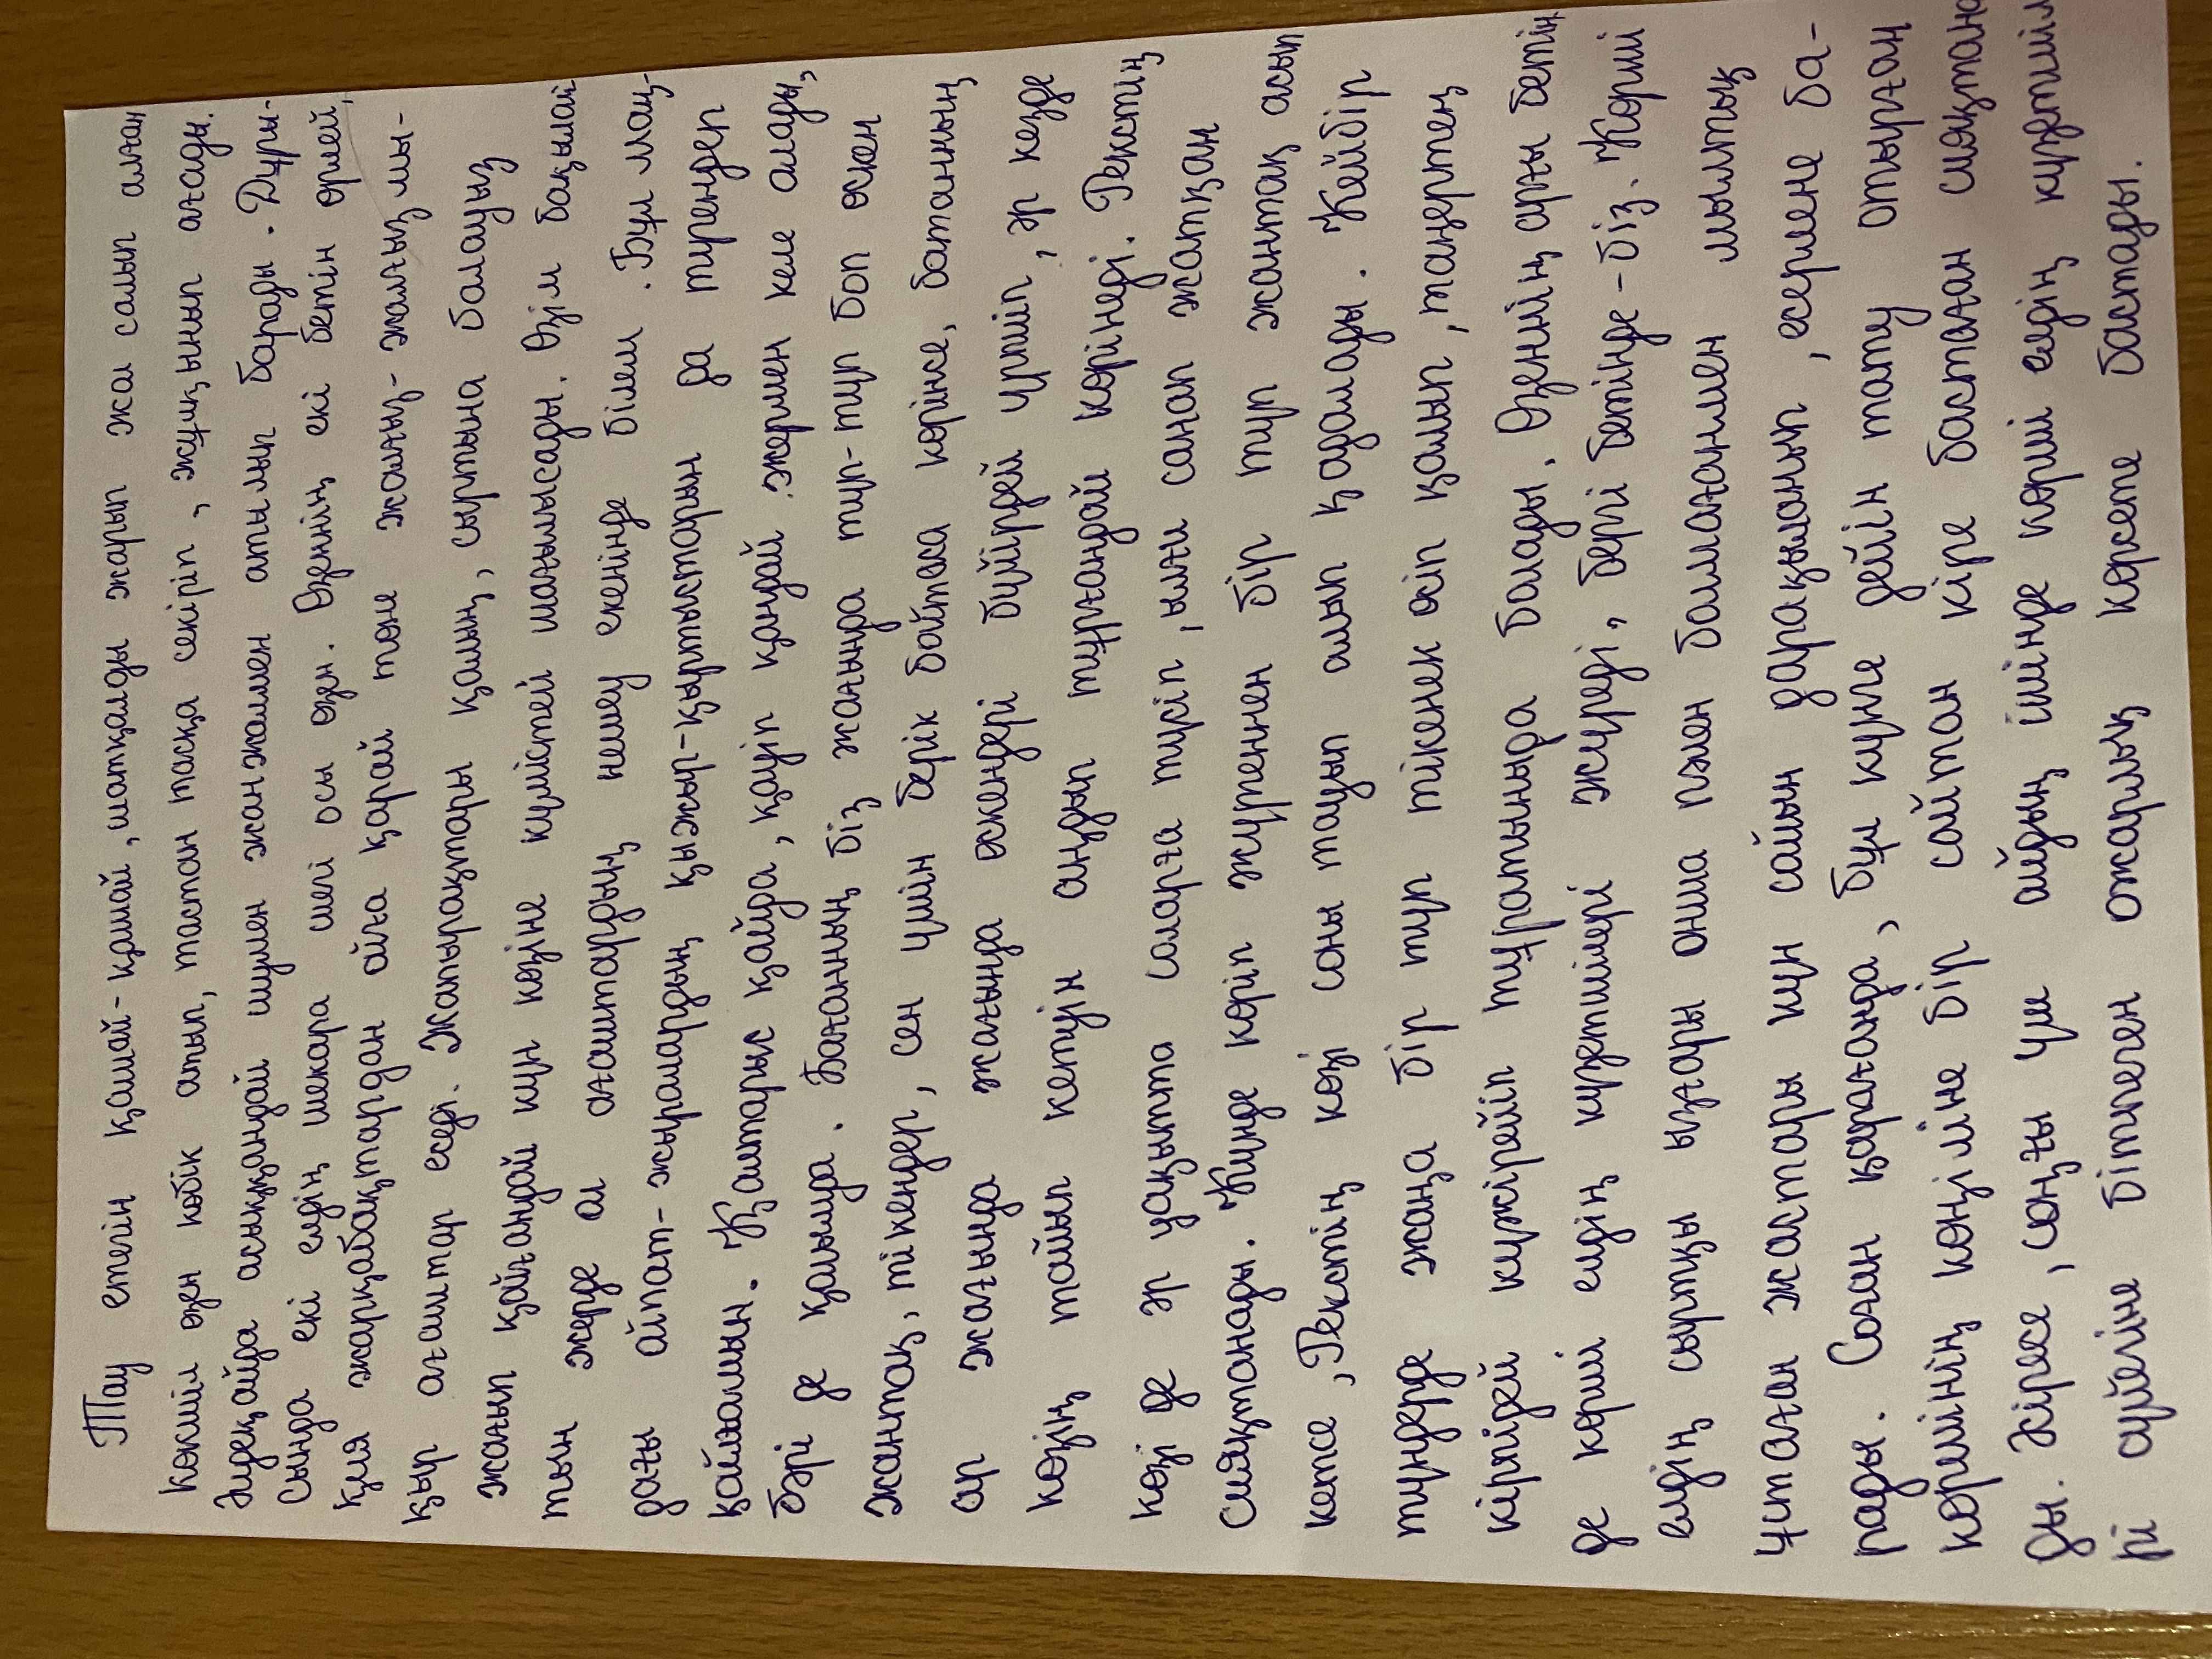 Тау етегін қашай-қашай, шатқалды жарып жол салып алған
көкшіл өзен көбік атып, тастан тасқа секіріп, жұлқынып ағады.
Әлдеқайда асыққандай шумен жанжалмен атылып барады. Дұры-
сында екі елдің шекара шегі осы өзен. Өзеннің екі бетін өрлей,
қия жарқабақтардан ойға қарай төне жалғыз-жалғыз мы-
қыр ағаштар өседі. Жапырақтары қалың, сыртына балауыз
жағып қойғандай күн көзіне күмістей шағылысады. Өзім бақылай-
тын жерде ол ағаштардың нешеу екенінде білем. Бұл маң-
дағы ойпат-жыралардың қыжыр-қыртыстарын да түрендеп
қоймамын. Қалтарыс қайда, қауіп қандай жермен келе алады,
бәрі де қолымда. Бағанның біз жағында түп-түп боп өскен
жантақ, тікендер, сен үшін берік байтаса көрінсе, бағанның
ар жағында жағында өскендері бүйірдей үрпиіп, әр кезде
көзің тайып кетуін аңдып тұрғандай көрінеді. Рекстің
көзі де әр уақытта соларға түсіп, ылғи санап жатқан
сияқтанады. Күнде көріп жүргеннен бір түп жантақ асып
кетсе, Рекстің көзі соны тауып алып қадалады. Кейбір
түндерде жаңа бір түп тікенек өсіп қалып, таңертең
кірпідей күжірейіп тұратыныда болады. Өзеннің арғы бетін-
де көрші елдің күзетшілері жүреді, бергі бетінде - біз. Көрші
елдің сыртқы ызғары онша пәлен болмағанмен мылтық
ұстаған жастары күн сайын дарақыланып, есерлене ба-
рады. Соған қарағанда, бұл күнге дейін тату отырған
көршінің көңіліне бір сайтан кіре бастаған сияқтана
ды. Әсіресе, соңғы үш айдың ішінде көрші елдің күзетшіл
рі сүйегіне бітпеген ожарлық көрсете бастады.